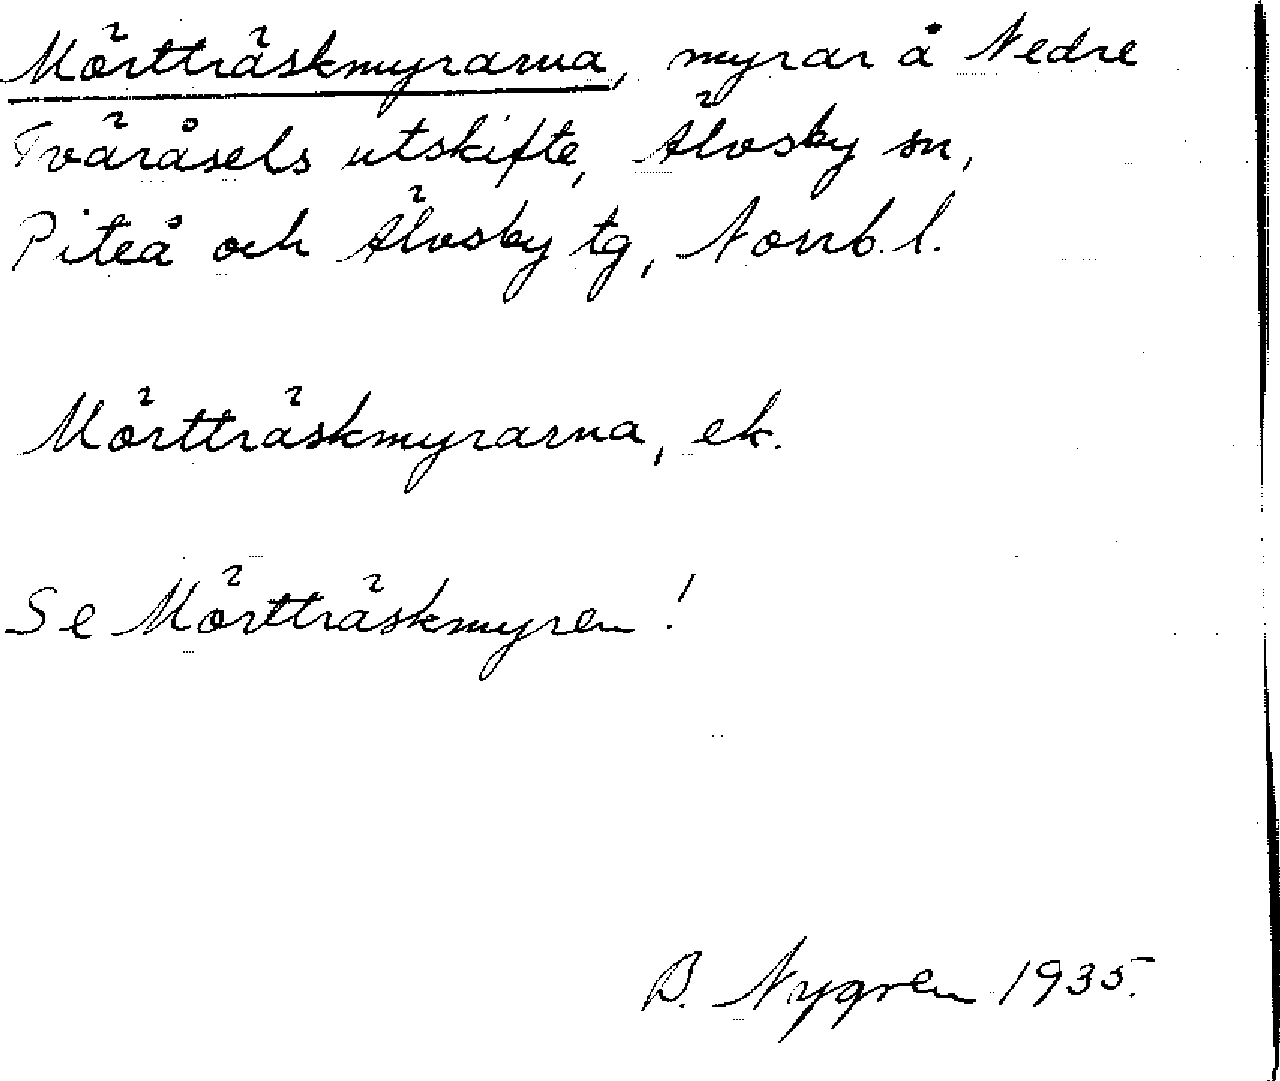 Mörtträskmyrarna, myrar å Nedre
Tväråsels utskifte, Älvsby sn,
Piteå och Älvsby tg, Norrb. l.
Mörtträskmyrarna, ek.
Se Mörtträskmyren!
B. Nygren 1935.